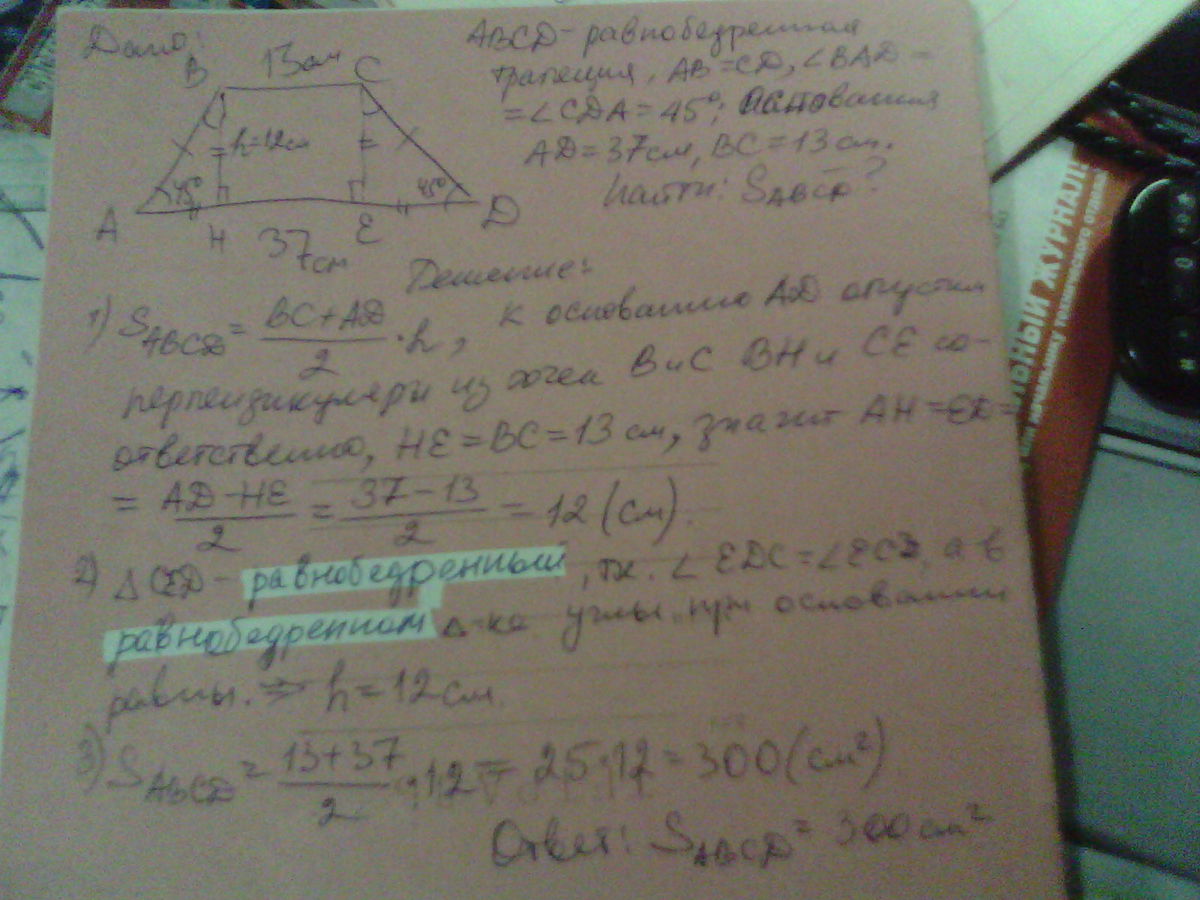 Дано:
B 13см C
h=12см
45° 45°
A H E D
37см
ABCD - равнобедренная
трапеция, AB=CD, ∠BAD=
=∠CDA=45°; основания
AD=37см, BC=13см.
Найти: S_ABCD?
Решение:
1) S_ABCD = (BC+AD)/2 · h, к основанию AD опустим
перпендикуляры из точек B и C BH и CE со-
ответственно, HE=BC=13см, значит AH=ED=
= (AD-HE)/2 = (37-13)/2 = 12 (см).
2) △CED - равнобедренный, т.к. ∠EDC=∠ECD, а в
равнобедренном △-ке углы при основании
равны. ⇒ h=12см.
3) S_ABCD = (13+37)/2 · 12 = 25·12 = 300 (см²)
Ответ: S_ABCD = 300см²
ЖУРНАЛ